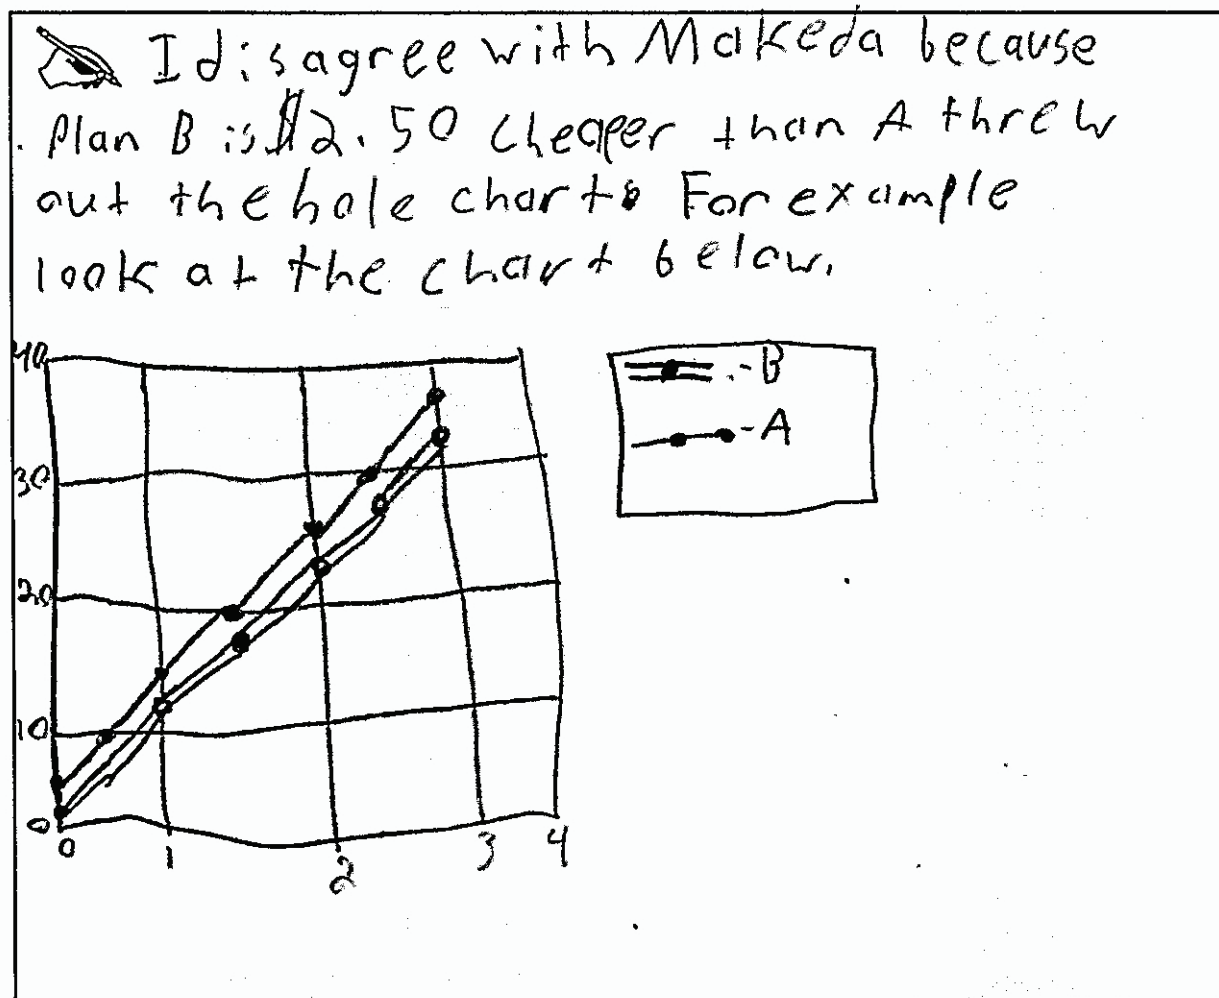 I disagree with Makeda because
Plan B is $2.50 cheaper than A threw
out the hole chart. For example
look at the chart below.
40
30
20
10
0
0 1 2 3 4
.-B
-A